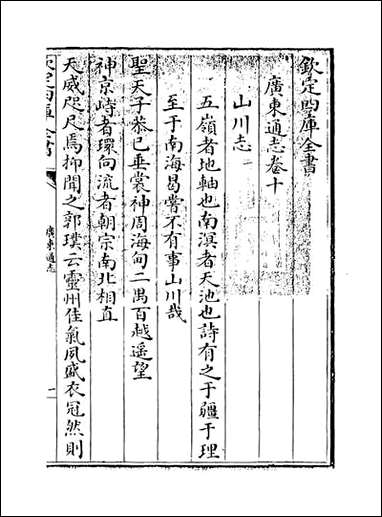 欽定四庫全書
廣東通志卷十
山川志
五嶺者地軸也南溟者天池也詩有之于疆于理
至于南海曷嘗不有事山川哉
聖天子恭已垂裳神周海甸二禺百越遥望
神京峙者環向流者朝宗南北相直
天威咫尺焉抑聞之郭璞云靈州佳氣夙盛衣冠然則
欽定四庫全書
廣東通志
一